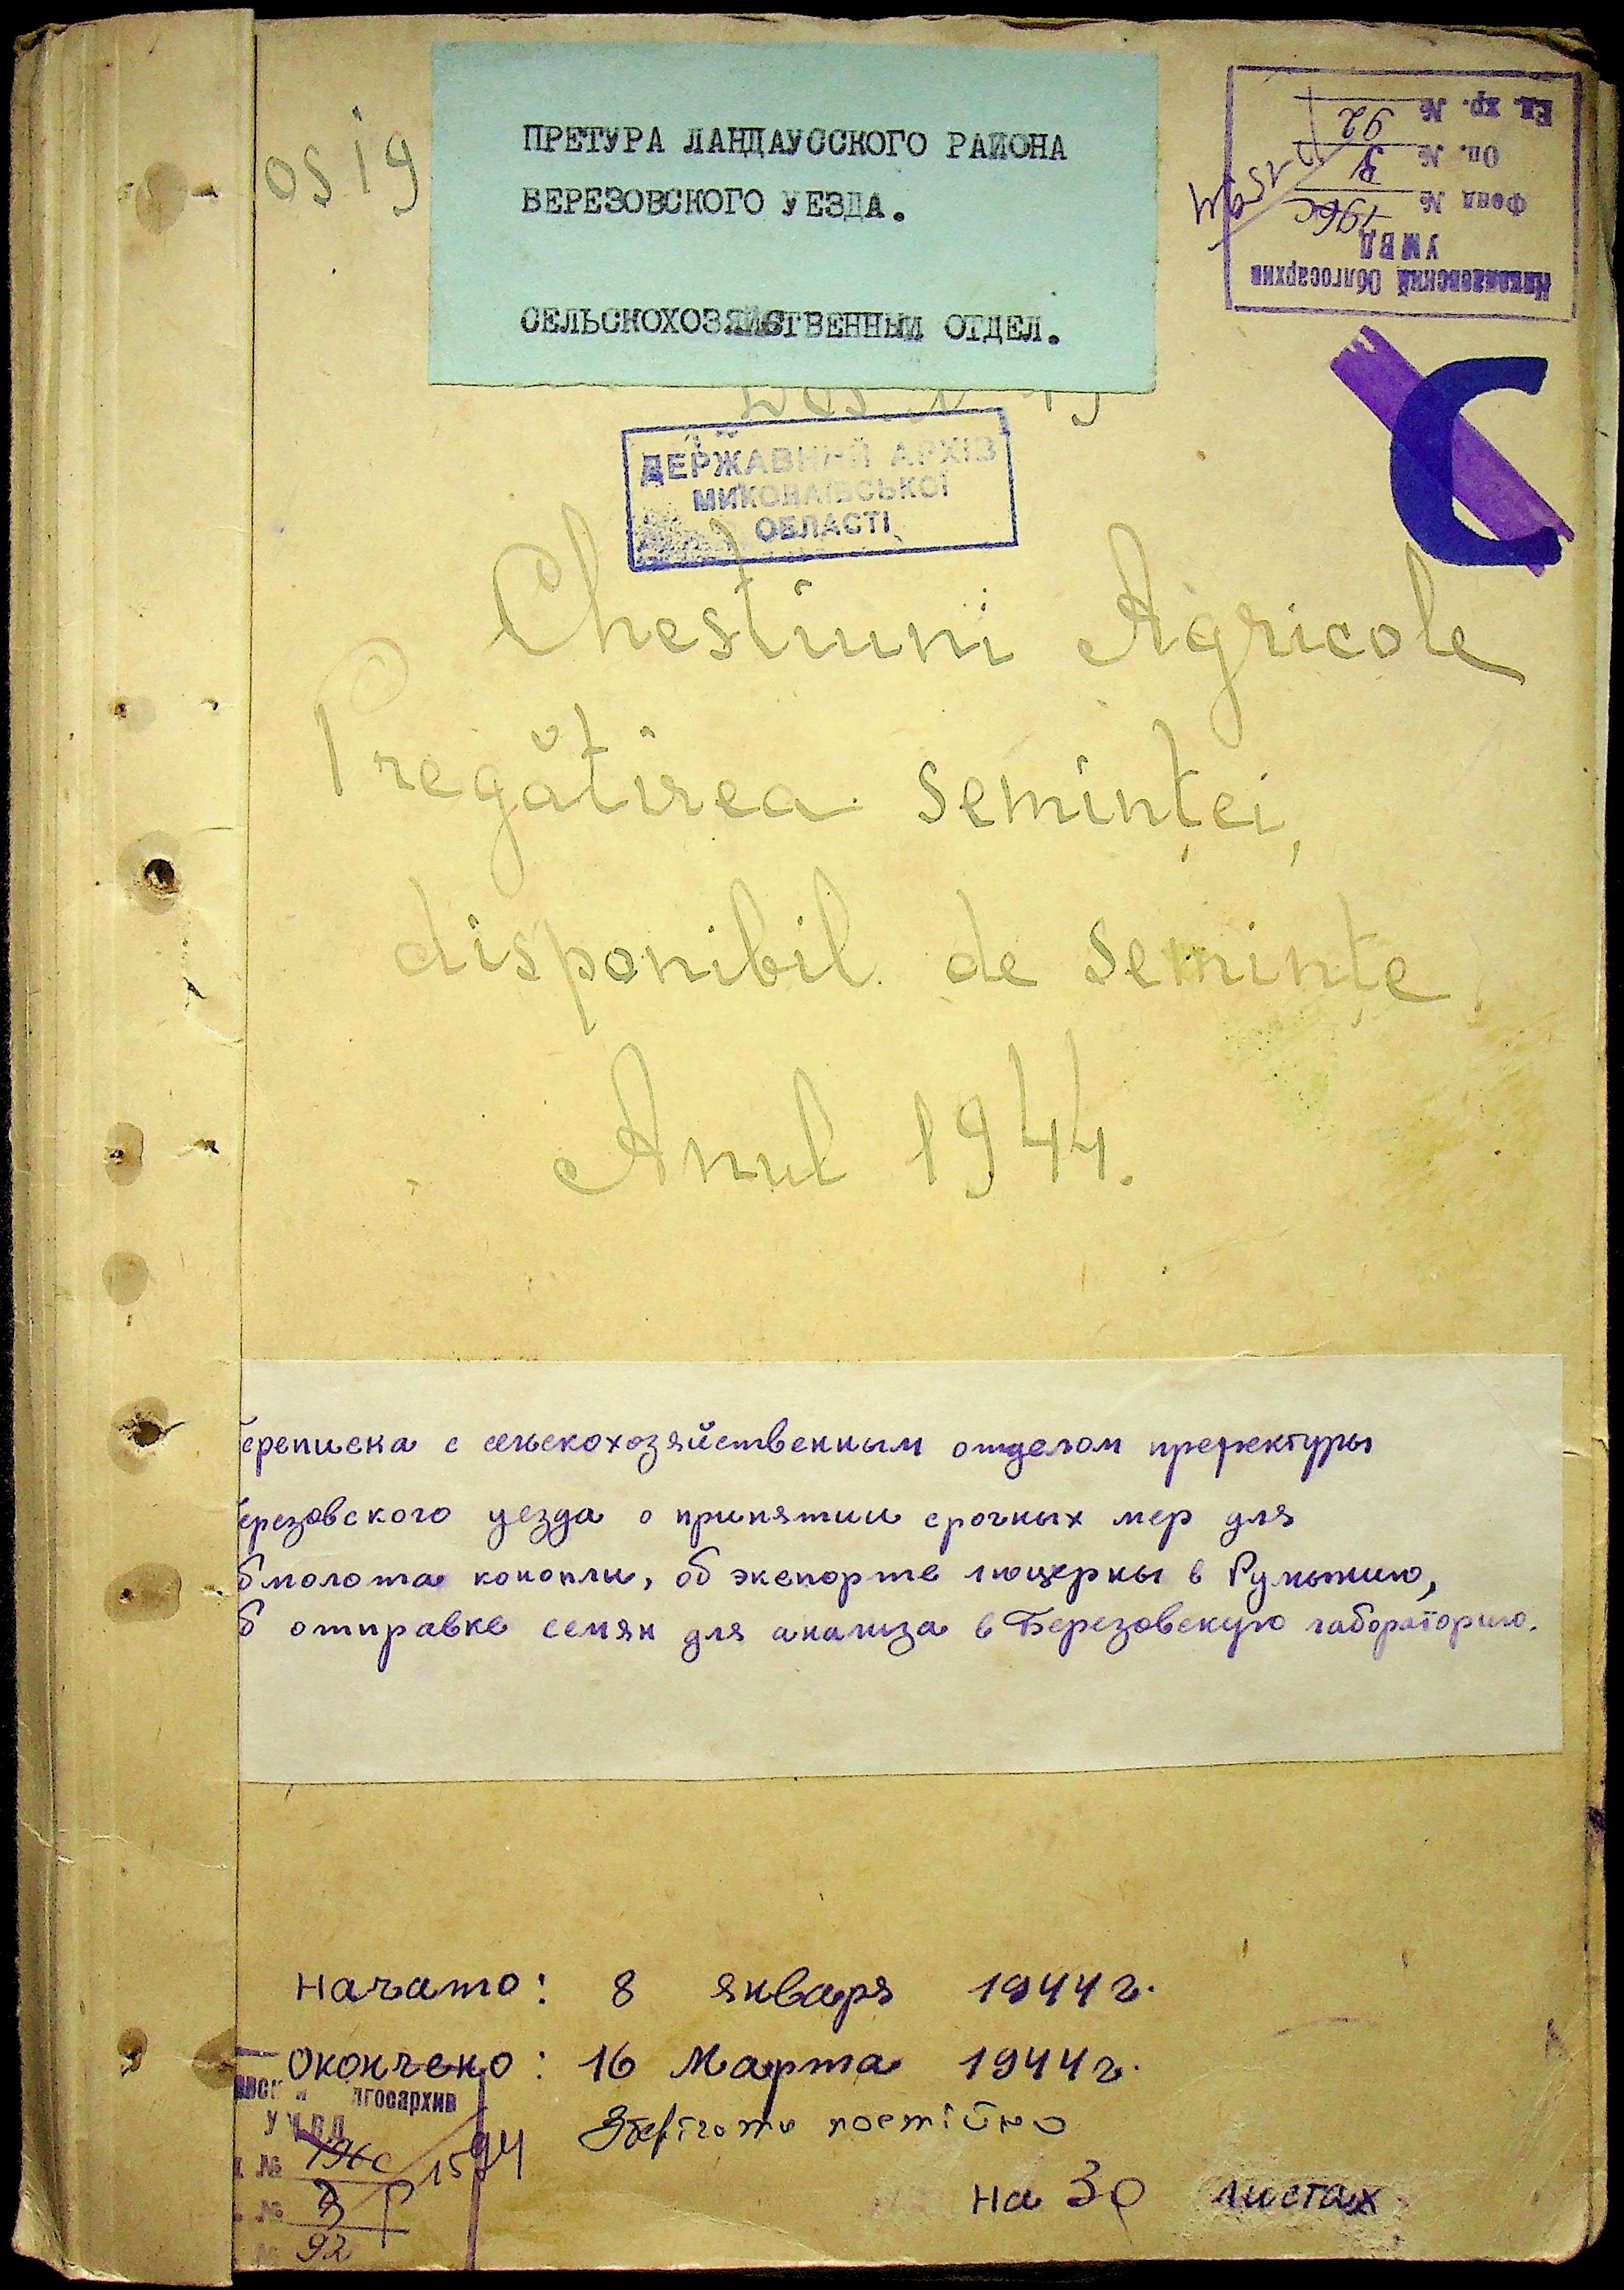 osig
ПРЕТУРА ЛАНДАУССКОГО РАЙОНА
БЕРЕЗОВСКОГО УЕЗДА.
СЕЛЬСКОХОЗЯЙСТВЕННЫЙ ОТДЕЛ.
Николаевский Облгосархив
УМВД
Фонд № 196с
Оп. №
Ед. хр. № 92
С
ДЕРЖАВНИЙ АРХІВ
МИКОЛАЇВСЬКОЇ
ОБЛАСТІ
Chestiuni Agricole
Pregătirea seminței,
disponibil de semințe
Anul 1944.
ереписка с сельскохозяйственным отделом префектуры
ерезовского уезда о принятии срочных мер для
бмолота конопли, об экспорте люцерны в Румынию,
б отправке семян для анализа в Березовскую лабораторию.
Начато: 8 января 1944 г.
Окончено: 16 Марта 1944 г.
лгосархив
УМВД
№ 196с 1594
№
№ 92
Зберігати постійно
на 30 листах